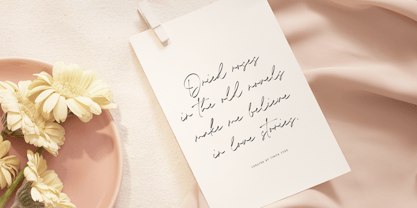 Dried roses
in the old novels
make me believe
in love stories.